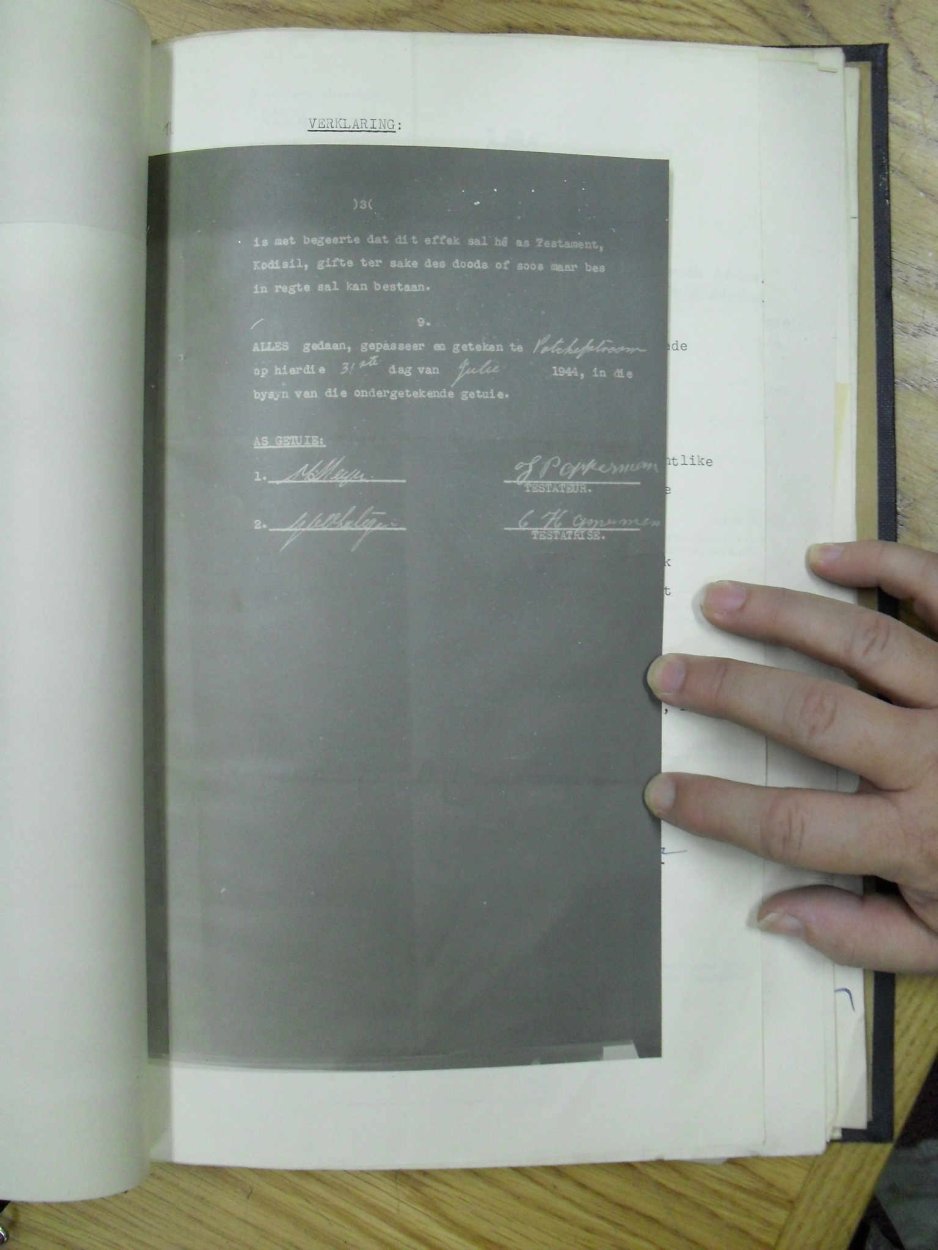 VERKLARING:
)3(
is met begeerte dat dit effek sal hê as Testament,
Kodisil, gifte ter sake des doods of soos maar bes
in regte sal kan bestaan.
9.
ALLES gedaan, gepasseer en geteken te Potchefstroom
op hierdie 31ste dag van Julie 1944, in die
bysyn van die ondergetekende getuie.
AS GETUIE:
1.
J P Opperman
TESTATEUR.
2.
C H Opperman
TESTATRISE.
ede
ntlike
e
k
t